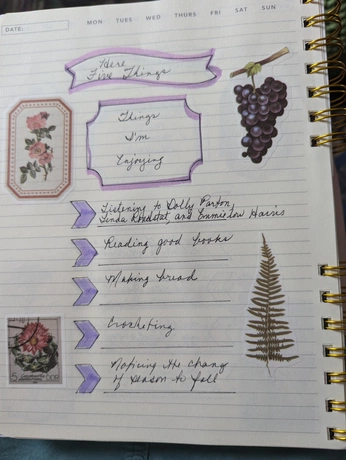 DATE:
MON TUES WED THURS FRI SAT SUN
Here
Five Things
Things
I'm
Enjoying
Listening to Dolly Parton,
Linda Ronstat, and Emmielou Harris
Reading good books
Making bread
Crocheting
Noticing the change
of season to fall
15 DDR